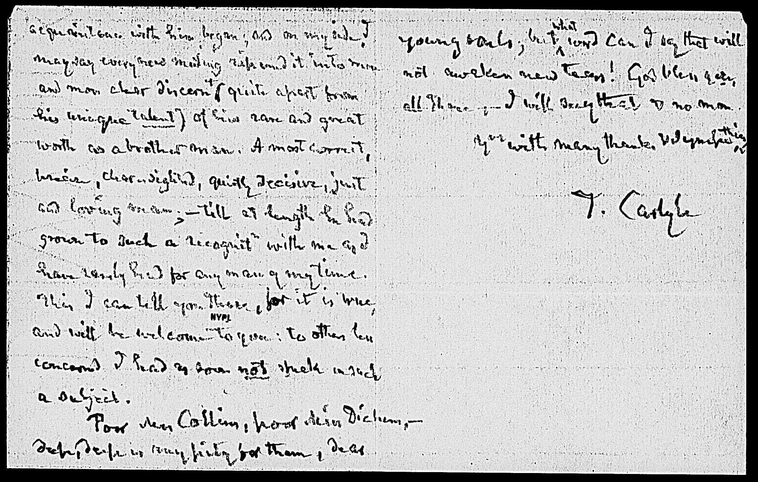 acquaintance with him began; and on my side, I
may say every new meeting ripened it into more
and more clear discernt (quite apart from
his unique talent) of his rare and great
worth as a brother man. A most correct,
precise, clear-sighted, quietly decisive, just
and loving man; – till at length he had
grown to such a recognitn with me as I
have rarely had for any man of my time.
This I can tell you three, for it is true,
NYPL
and will be welcome to you: to others less
concerned I had as soon not speak on such
a subject.
Poor Mrs Collins, poor Miss Dickens, –
deep, deep is my pity for them, dear
young souls; but what word can I say that will
not awaken new tears! God bless you,
all three, – I will say that & no more.
Yrs with many thanks & sympathies
T. Carlyle